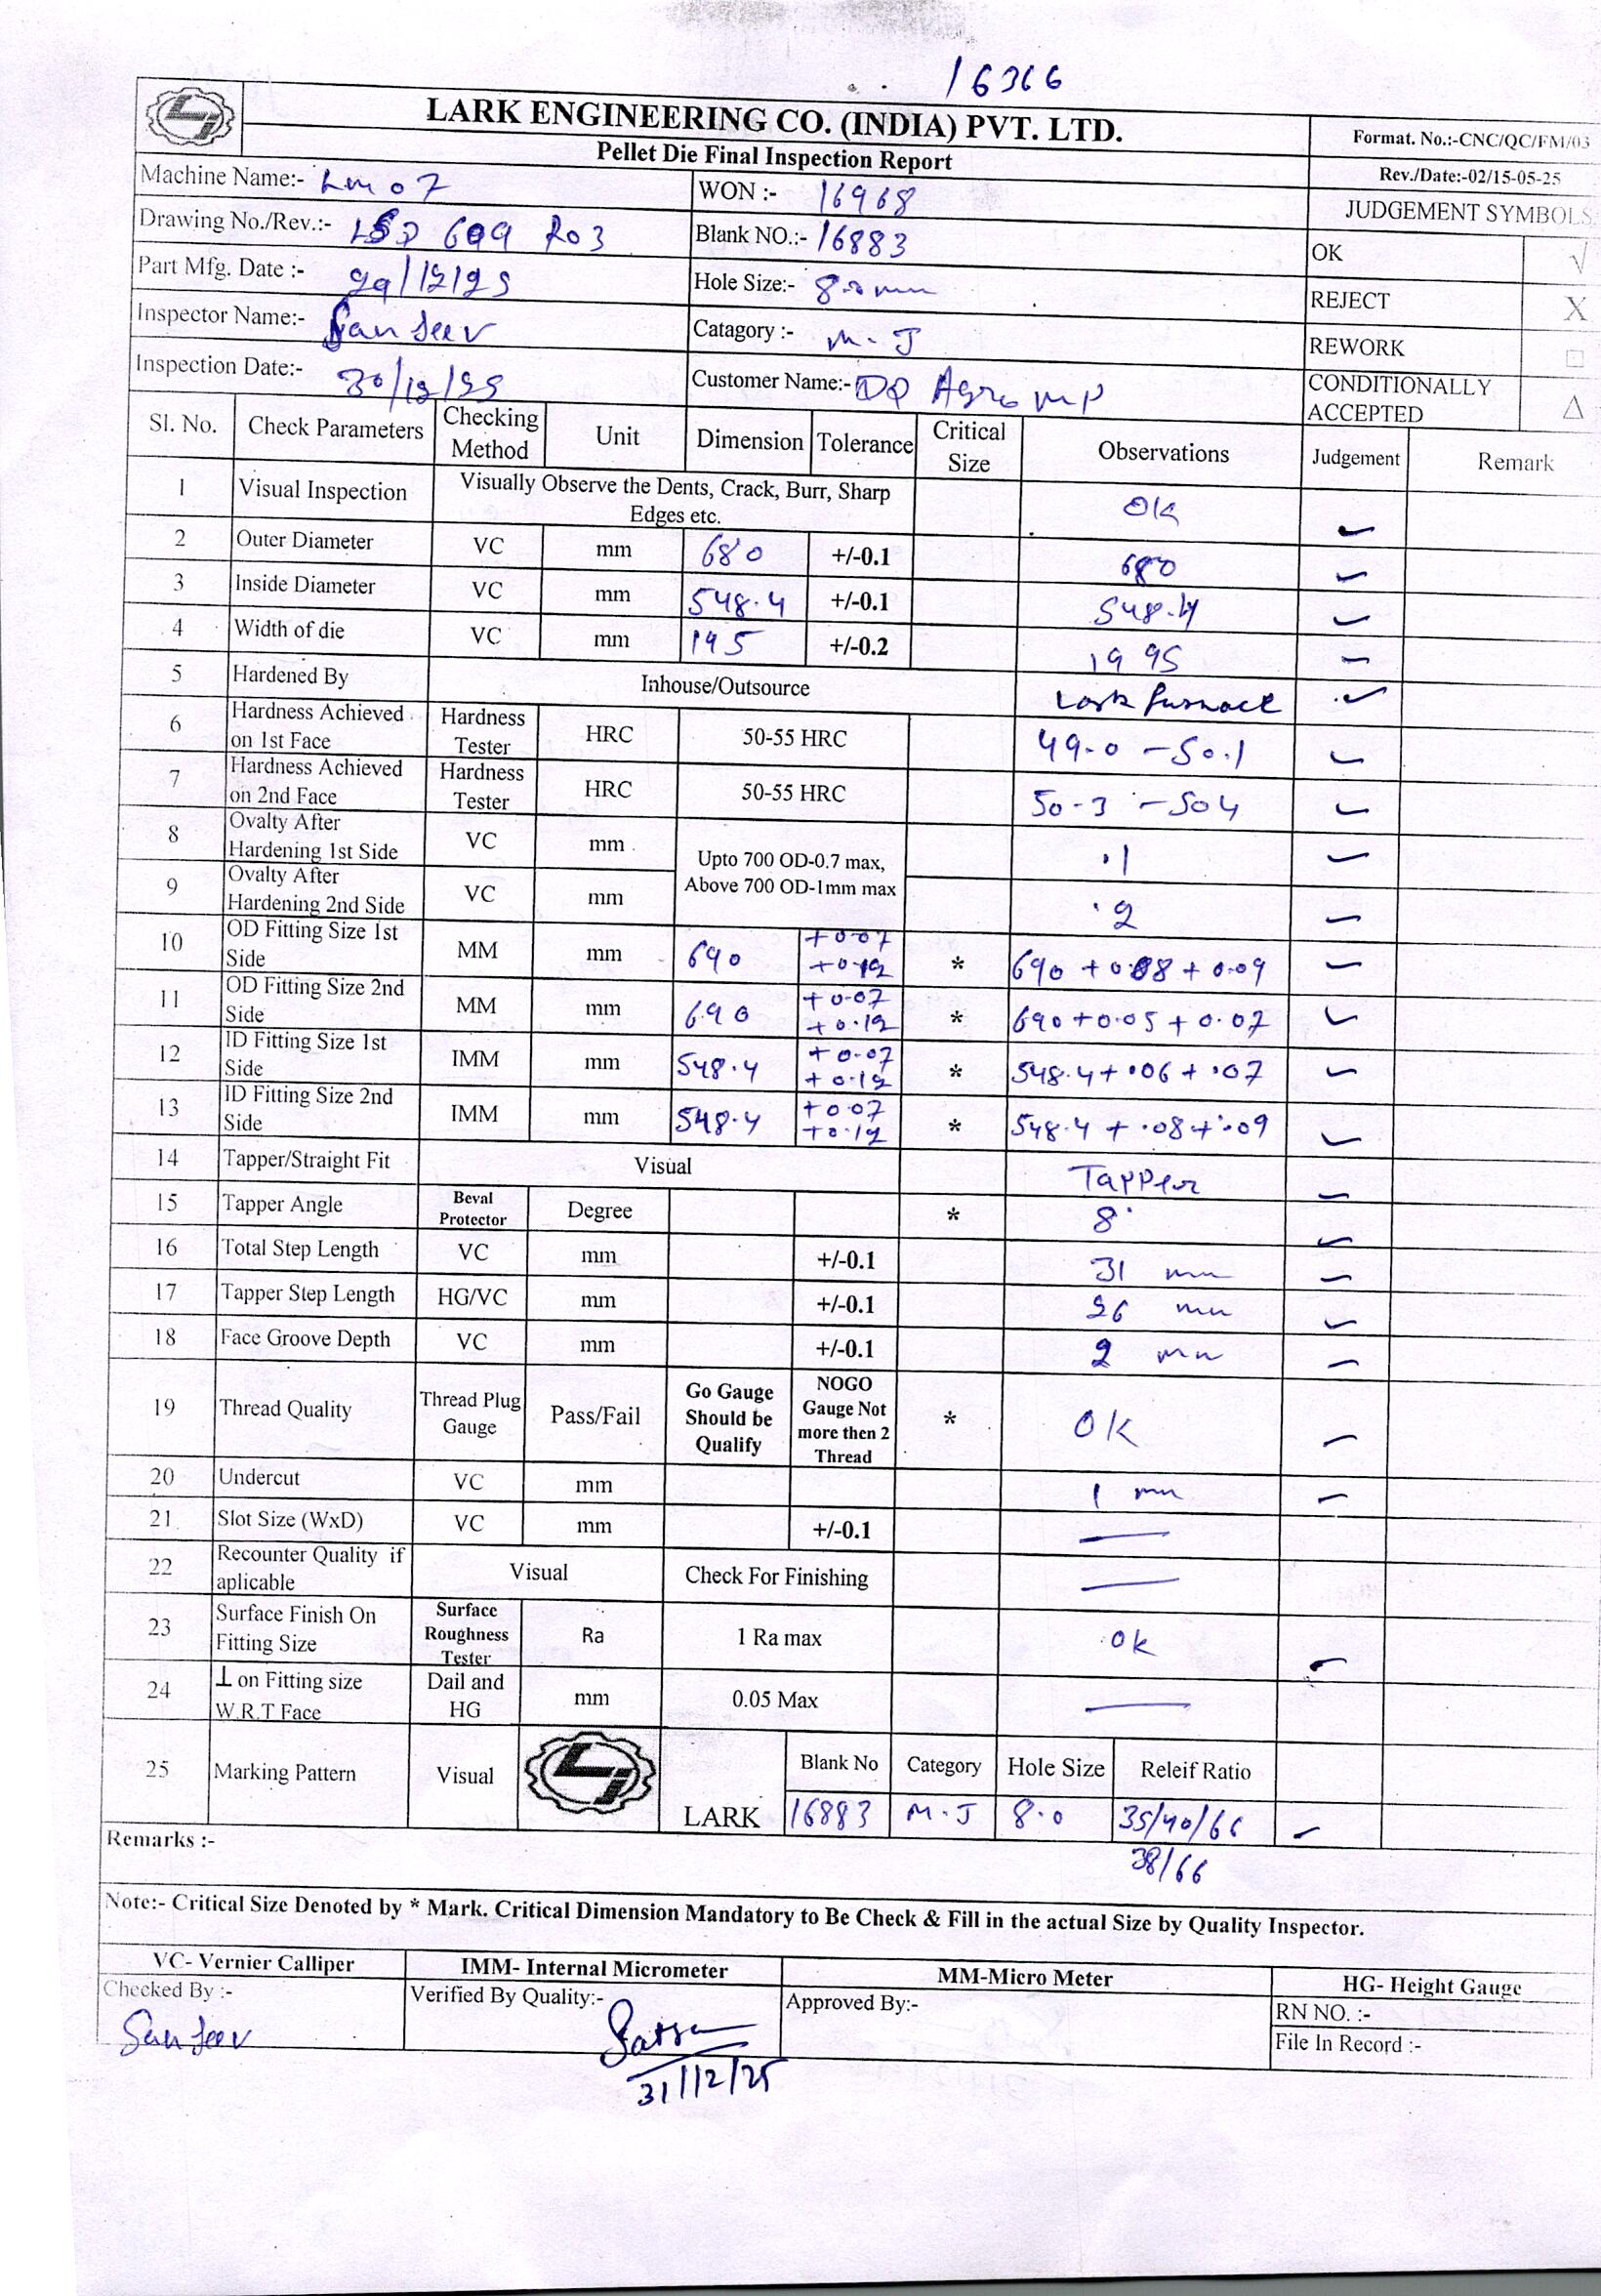 16366
LARK ENGINEERING CO. (INDIA) PVT. LTD.
Format. No.:-CNC/QC/FM/03
Pellet Die Final Inspection Report
Rev./Date:-02/15-05-25
Machine Name:- Lm 07 WON :- 16968
JUDGEMENT SYMBOLS
Drawing No./Rev.:- LSD 609 R03 Blank NO.:- 16883
OK √
Part Mfg. Date :- 29/12/25 Hole Size:- 8.0 mm
REJECT X
Inspector Name:- Sanjeev Catagory :- M.J
REWORK □
Inspection Date:- 30/12/25 Customer Name:- DQ Agro MP
CONDITIONALLY ACCEPTED △
Sl. No. Check Parameters Checking Method Unit Dimension Tolerance Critical Size Observations Judgement Remark
1 Visual Inspection Visually Observe the Dents, Crack, Burr, Sharp Edges etc. OK ✓
2 Outer Diameter VC mm 680 +/-0.1 680 ✓
3 Inside Diameter VC mm 548.4 +/-0.1 548.4 ✓
4 Width of die VC mm 195 +/-0.2 19 95 ✓
5 Hardened By Inhouse/Outsource Lark furnace ✓
6 Hardness Achieved on 1st Face Hardness Tester HRC 50-55 HRC 49.0 - 50.1 ✓
7 Hardness Achieved on 2nd Face Hardness Tester HRC 50-55 HRC 50.3 - 504 ✓
8 Ovalty After Hardening 1st Side VC mm Upto 700 OD-0.7 max, Above 700 OD-1mm max .1 ✓
9 Ovalty After Hardening 2nd Side VC mm .2 ✓
10 OD Fitting Size 1st Side MM mm 690 +0.07 +0.12 * 690 +0.08 + 0.09 ✓
11 OD Fitting Size 2nd Side MM mm 690 +0.07 +0.12 * 690 +0.05 + 0.07 ✓
12 ID Fitting Size 1st Side IMM mm 548.4 +0.07 +0.12 * 548.4 + .06 + .07 ✓
13 ID Fitting Size 2nd Side IMM mm 548.4 +0.07 +0.12 * 548.4 + .08 + .09 ✓
14 Tapper/Straight Fit Visual Tapper ✓
15 Tapper Angle Beval Protector Degree * 8° ✓
16 Total Step Length VC mm +/-0.1 31 mm ✓
17 Tapper Step Length HG/VC mm +/-0.1 26 mm ✓
18 Face Groove Depth VC mm +/-0.1 2 mm ✓
19 Thread Quality Thread Plug Gauge Pass/Fail Go Gauge Should be Qualify NOGO Gauge Not more then 2 Thread * OK ✓
20 Undercut VC mm 1 mm ✓
21 Slot Size (WxD) VC mm +/-0.1 —
22 Recounter Quality if aplicable Visual Check For Finishing —
23 Surface Finish On Fitting Size Surface Roughness Tester Ra 1 Ra max ok ✓
24 ⊥ on Fitting size W.R.T Face Dail and HG mm 0.05 Max —
25 Marking Pattern Visual LARK Blank No Category Hole Size Releif Ratio
16883 M.J 8.0 35/40/66 ✓
38/66
Remarks :-
Note:- Critical Size Denoted by * Mark. Critical Dimension Mandatory to Be Check & Fill in the actual Size by Quality Inspector.
VC- Vernier Calliper IMM- Internal Micrometer MM-Micro Meter HG- Height Gauge
Checked By :- Verified By Quality:- Approved By:- RN NO. :-
Sanjeev
File In Record :-
31/12/25